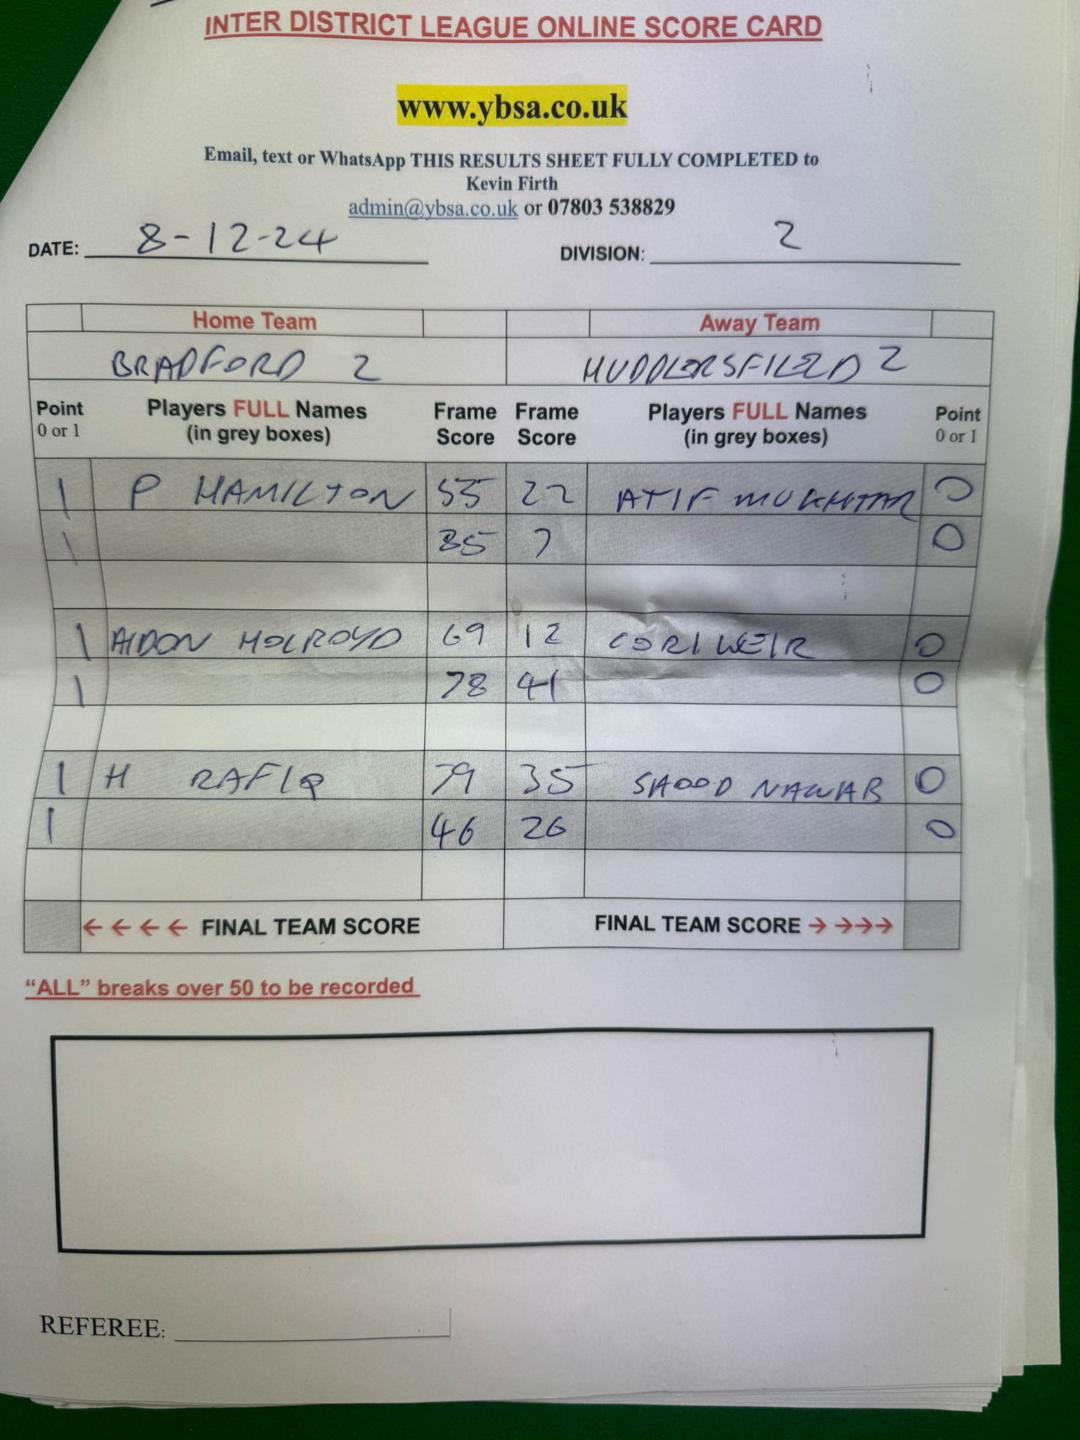 INTER DISTRICT LEAGUE ONLINE SCORE CARD
www.ybsa.co.uk
Email, text or WhatsApp THIS RESULTS SHEET FULLY COMPLETED to
Kevin Firth
admin@ybsa.co.uk or 07803 538829
DATE: 8-12-24 DIVISION: 2
Home Team Away Team
BRADFORD 2 HUDDERSFILED 2
Point Players FULL Names Frame Frame Players FULL Names Point
0 or 1 (in grey boxes) Score Score (in grey boxes) 0 or 1
1 P HAMILTON 55 22 ATIF MUKHTAR 0
1 85 7 0
1 AIDON HOLROYD 69 12 CORI WEIR 0
1 78 41 0
1 H RAFIQ 79 35 SAOOD NAWAB 0
1 46 26 0
← ← ← ← FINAL TEAM SCORE FINAL TEAM SCORE → →→→
“ALL” breaks over 50 to be recorded
REFEREE: